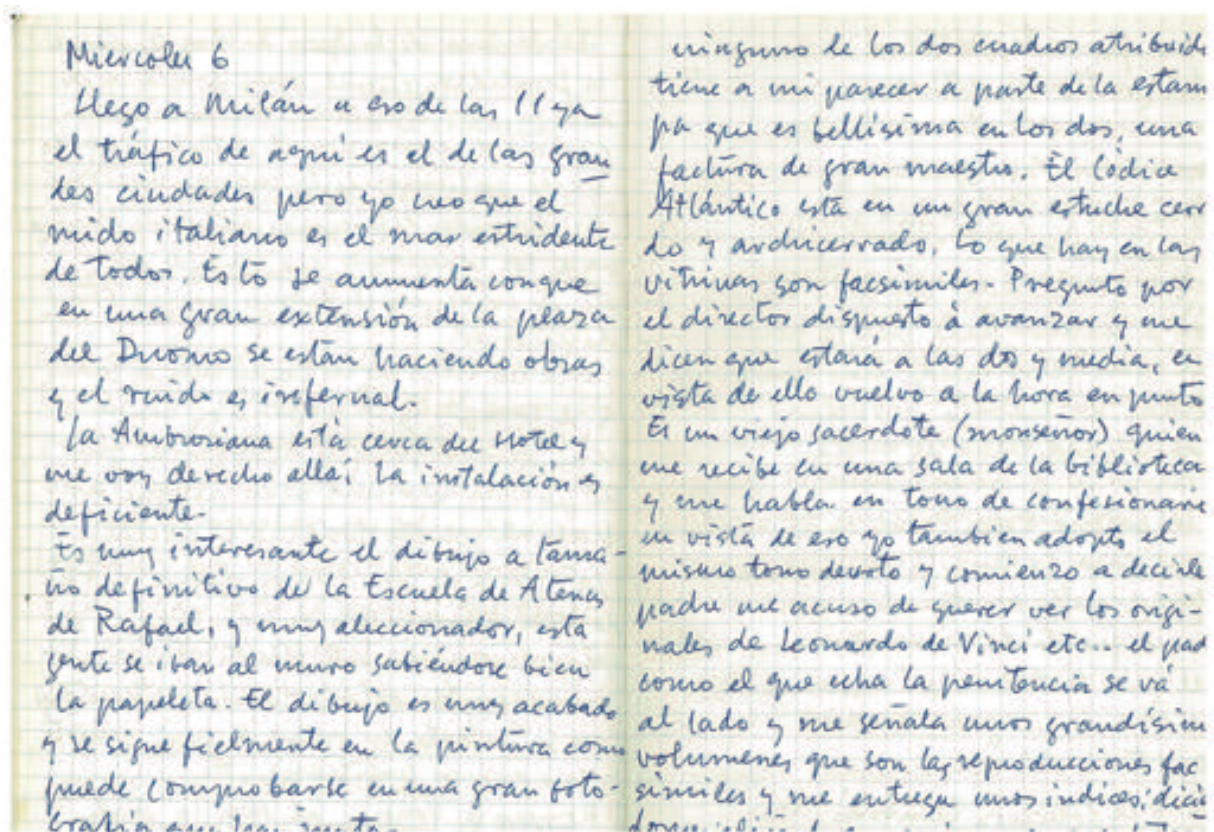 Miercoles 6
Llego a Milán a eso de las 11 ya
el tráfico de aquí es el de las gran
des ciudades pero yo creo que el
ruido italiano es el mas estridente
de todos. Esto se aumenta conque
en una gran extensión de la plaza
del Duomo se estan haciendo obras
y el ruido es infernal.
La Ambrosiana está cerca del Hotel y
me voy derecho alla; la instalación es
deficiente.
Es muy interesante el dibujo a tama-
ño definitivo de la Escuela de Atenas
de Rafael, y muy aleccionador, esta
gente se iban al muro sabiéndose bien
la papeleta. El dibujo es muy acabado
y se sigue fielmente en la pintura como
puede comprobarse en una gran foto-
grafia que hay junto
ninguno de los dos cuadros atribuid
tiene a mi parecer a parte de la estam
pa que es bellísima en los dos, una
factura de gran maestro. El Códice
Atlántico está en un gran estuche cerr
do y archicerrado. Lo que hay en las
vitrinas son facsimiles. Pregunto por
el director dispuesto à avanzar y me
dicen que estará a las dos y media, en
vista de ello vuelvo a la hora en punto
Es un viejo sacerdote (monseñor) quien
me recibe en una sala de la biblioteca
y me habla en tono de confesionario
en vista de eso yo tambien adopto el
mismo tono devoto y comienzo a decirle
padre me acuso de querer ver los origi-
nales de Leonardo de Vinci etc.. el pad
como el que echa la penitencia se vá
al lado y me señala unos grandísim
volumenes que son las reproducciones fac
similes y me entrega unos indices, dicié